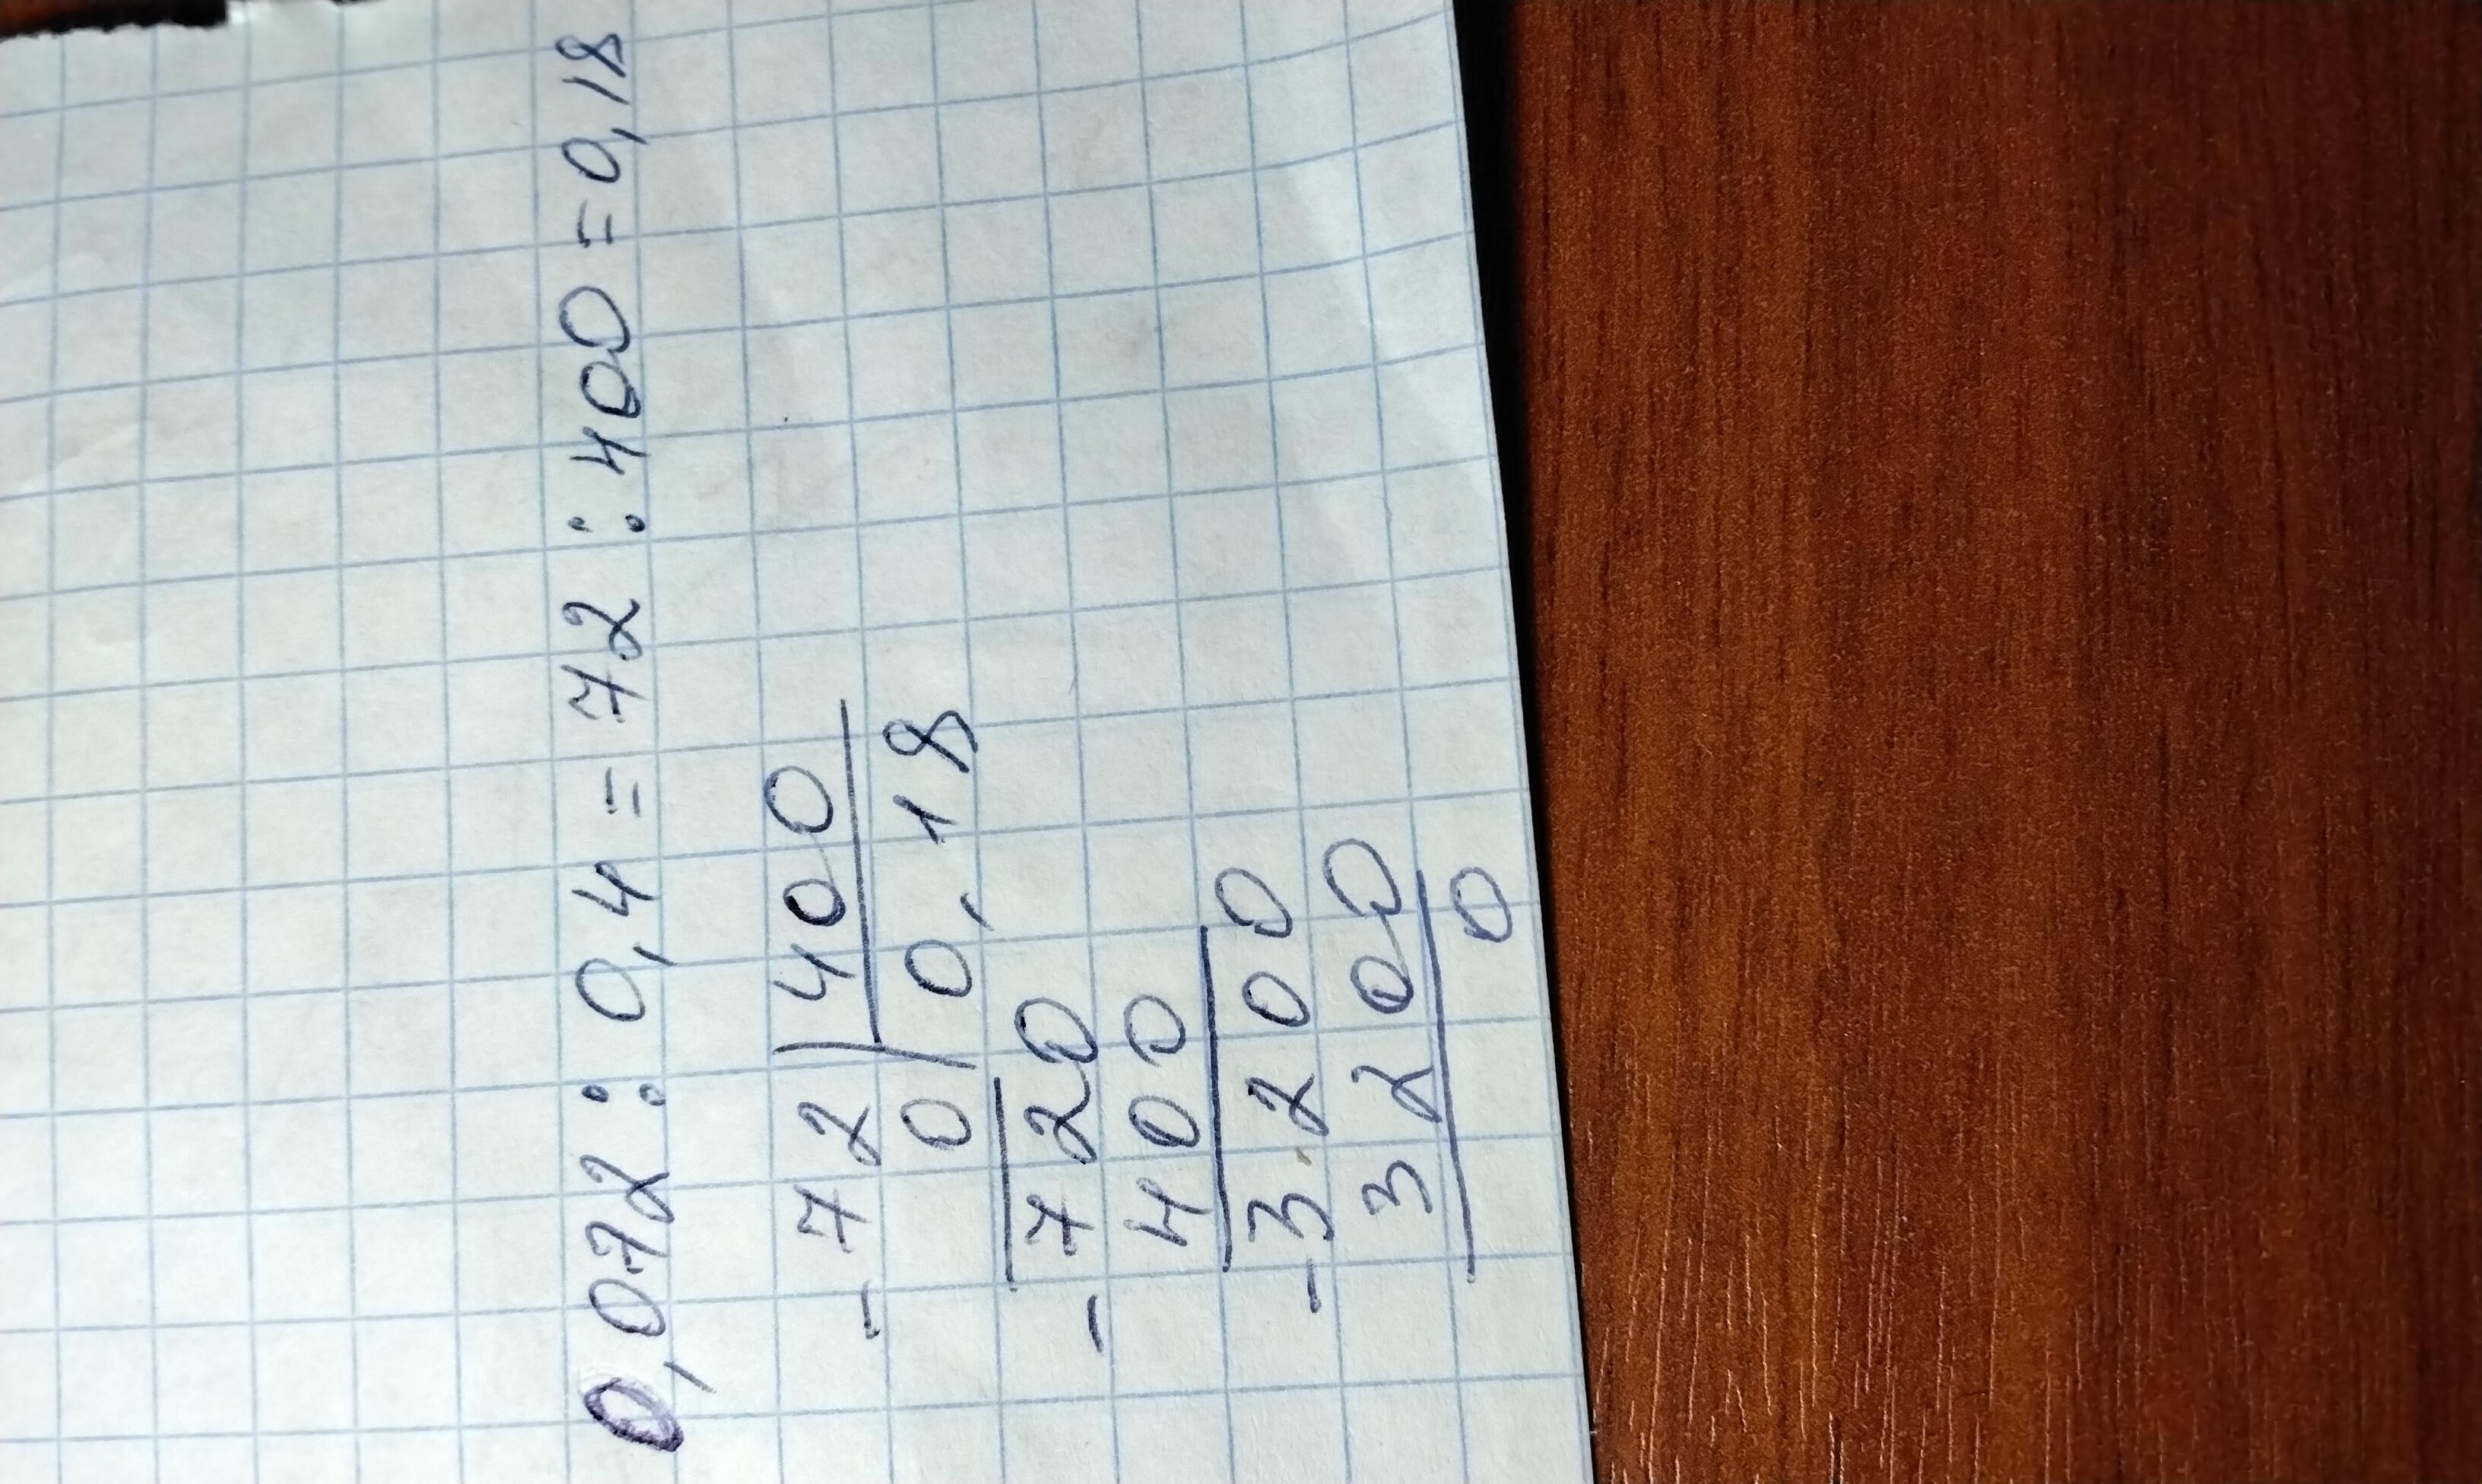 0,072 : 0,4 = 72 : 400 = 0,18
- 72 | 400
0 | 0,18
- 720
400
- 3200
3200
0